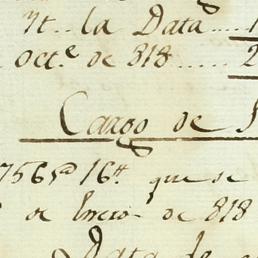 Yt.. la Data.... 1
Oct.e de 818 ..... 2
Cargo de
7565 rd 16 tt. que se
de Enero de 818
Data de